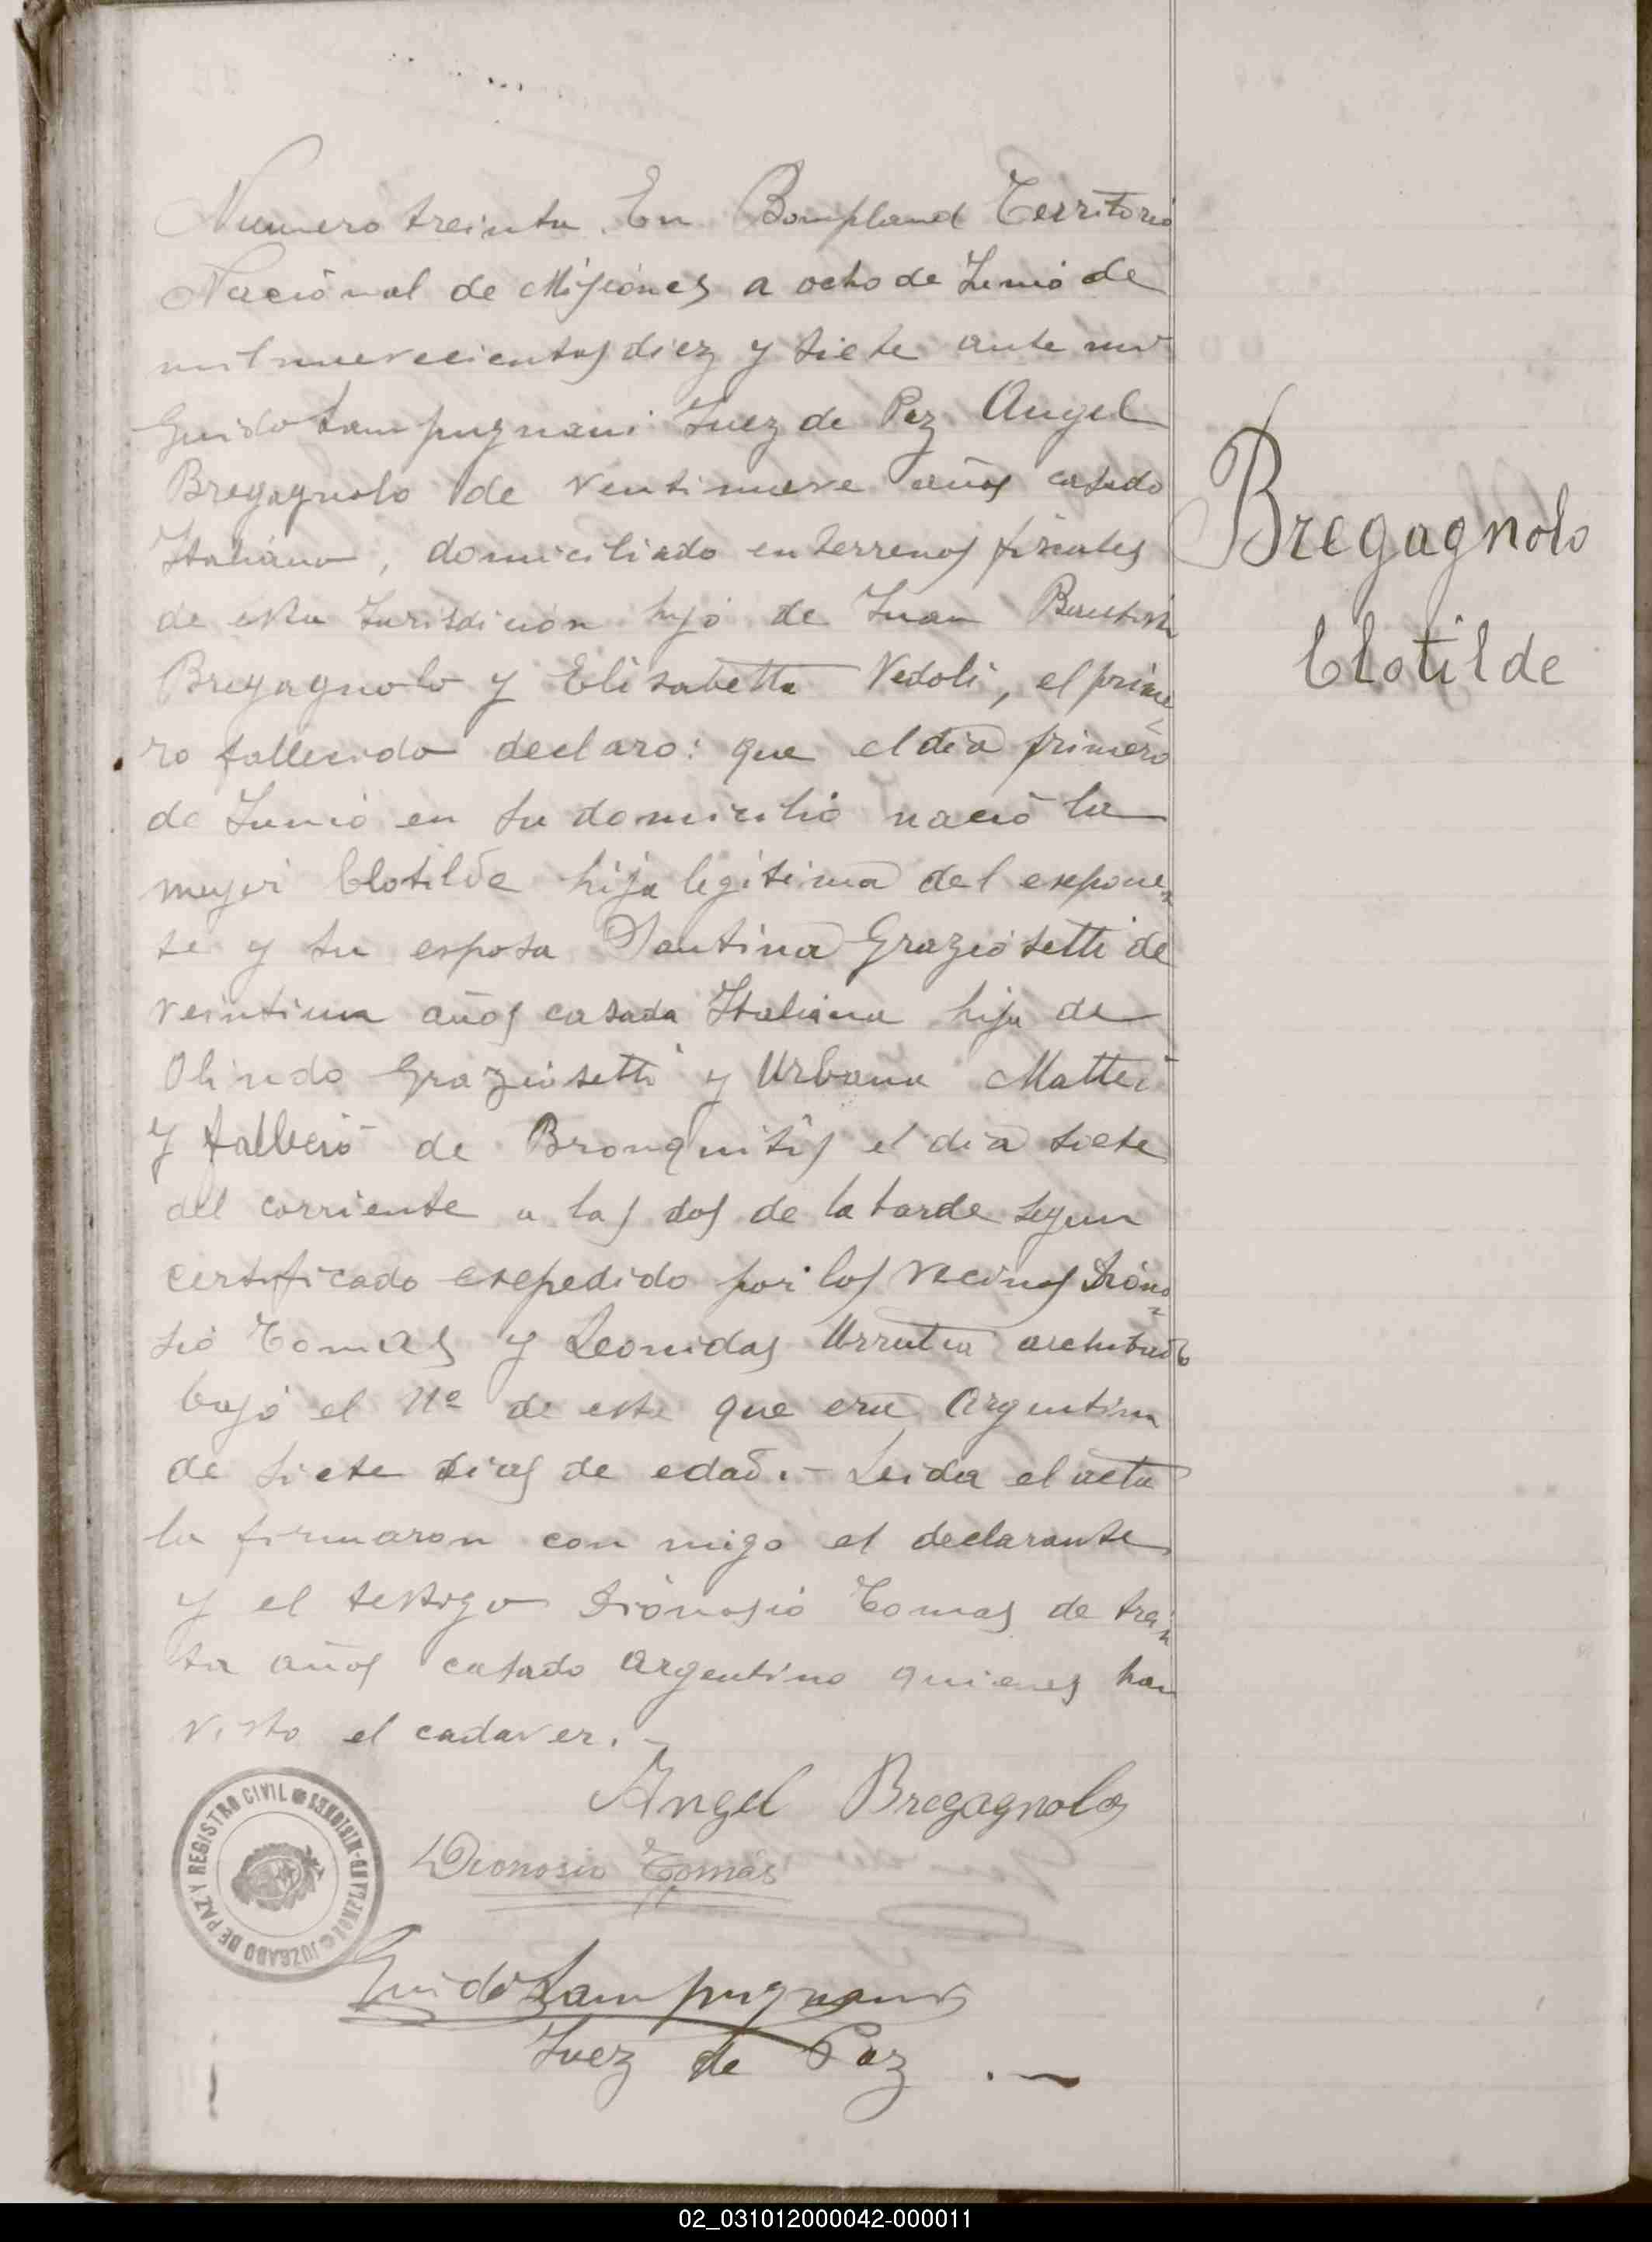 Numero treinta. En Bompland Territorio
Nacional de Misiones a ocho de Junio de
mil nuevecientos diez y siete ante mi
Guido Lampugnani Juez de Paz Angel
Bregagnolo de ventinueve años casado
Italiano, domiciliado en terrenos fiscales
de esta Jurisdicion hijo de Juan Bautista
Bregagnolo y Elisabetta Vedoli, el prime
ro fallecido declaro: que el dia primero
de Junio en su domicilio nació la
mujer Clotilde hija legitima del exponen
te y su esposa Santina Graziosetti de
veintiun años casada Italiana hija de
Olindo Graziosetti y Urbana Mattei
y falleció de Bronquitis el dia siete
del corriente a las dos de la tarde segun
certificado expedido por los vecinos Diono
sio Tomas y Leonidas Urrutia archivado
bajo el Nº de este que era Argentina
de siete dias de edad.- Leida el acta
la firmaron con migo el declarante
y el testigo Dionosio Tomas de trein
ta años casado Argentino quienes han
visto el cadaver.-
Angel Bregagnolo
Dionosio Tomás
Guido Lampugnani
Juez de Paz .-
Bregagnolo
Clotilde
JUZGADO DE PAZ Y REGISTRO CIVIL
BONPLAND-MISIONES
02_031012000042-000011